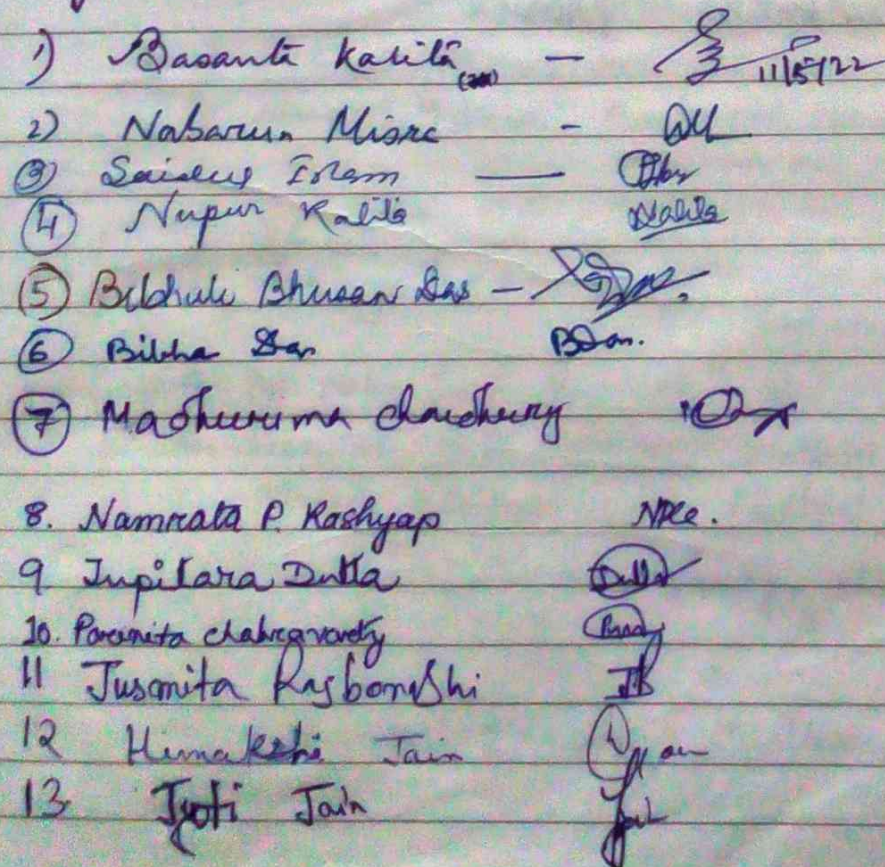 1) Basanta Kalita - 11/5/22
2) Nabarun Misra -
3) Saidul Islam —
4) Nupur Kalita NKalita
5) Bibhuti Bhusan Das - Das.
6) Bibha Das BDas.
7) Madhurima Choudhury
8. Namrata P. Kashyap NPK.
9 Jupitara Dutta Dutta
10. Paromita Chakravorty
11 Jusmita Rajbongshi JB
12 Himakshi Jain
13 Jyoti Jain